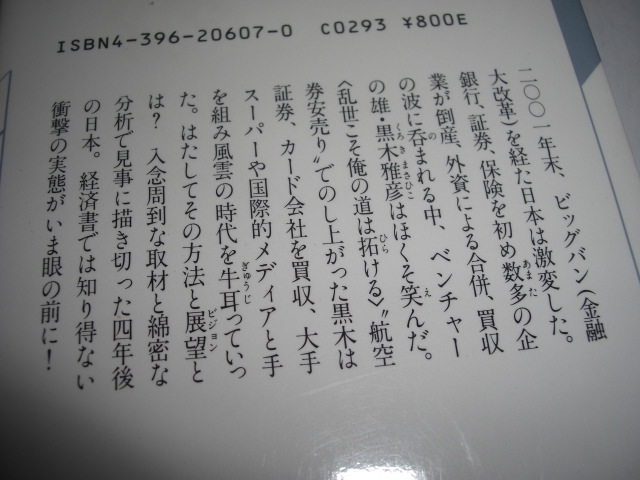 ISBN4-396-20607-0 C0293 ¥800E
二〇〇一年末、ビッグバン（金融
大改革）を経た日本は激変した。
銀行、証券、保険を初め数多の企
業が倒産、外資による合併、買収
の波に呑まれる中、ベンチャー
の雄・黒木雅彦はほくそ笑んだ。
〈乱世こそ俺の道は拓ける〉〝航空
券安売り〟でのし上がった黒木は
証券、カード会社を買収、大手
スーパーや国際的メディアと手
を組み風雲の時代を牛耳っていっ
た。はたしてその方法と展望と
は？ 入念周到な取材と綿密な
分析で見事に描き切った四年後
の日本。経済書では知り得ない
衝撃の実態がいま眼の前に！